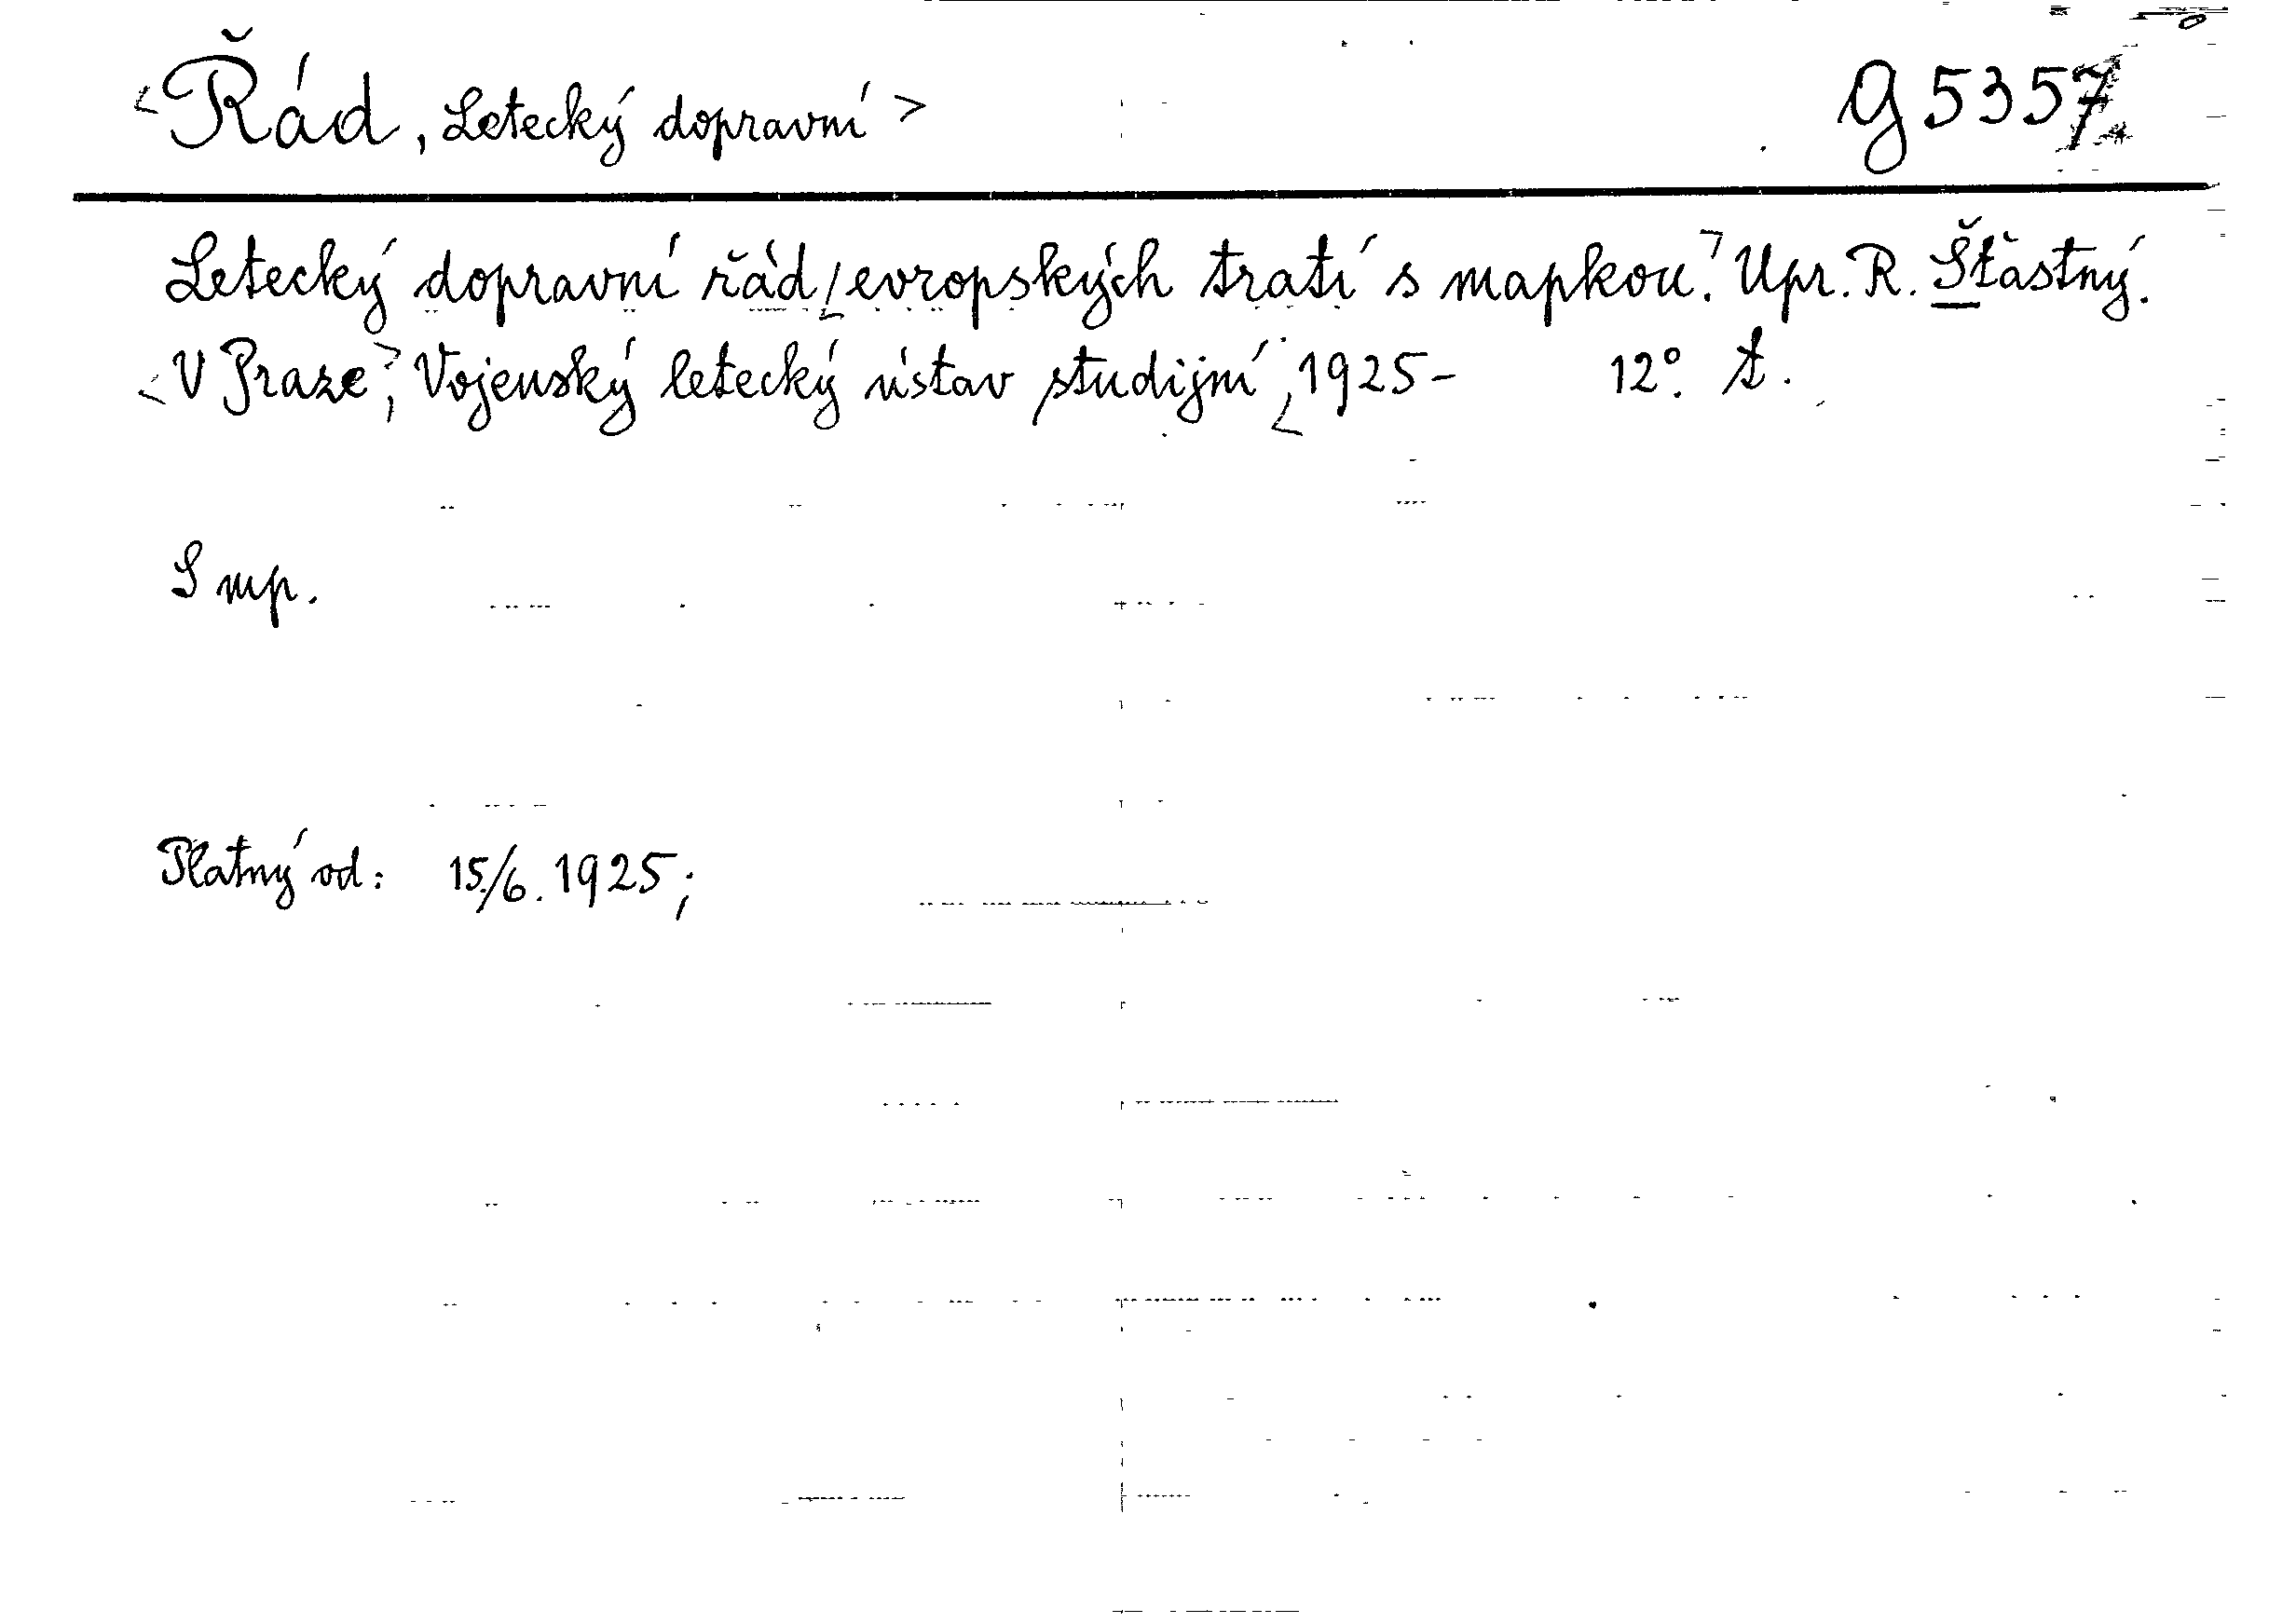 <Řád, Letecký dopravní>
g 5357
Letecký dopravní řád/evropských tratí s mapkou. Upr. R. Šťastný.
<V Praze>, Vojenský letecký ústav studijní, 1925- 12°. t.
S mp.
Platný od: 15./6. 1925;